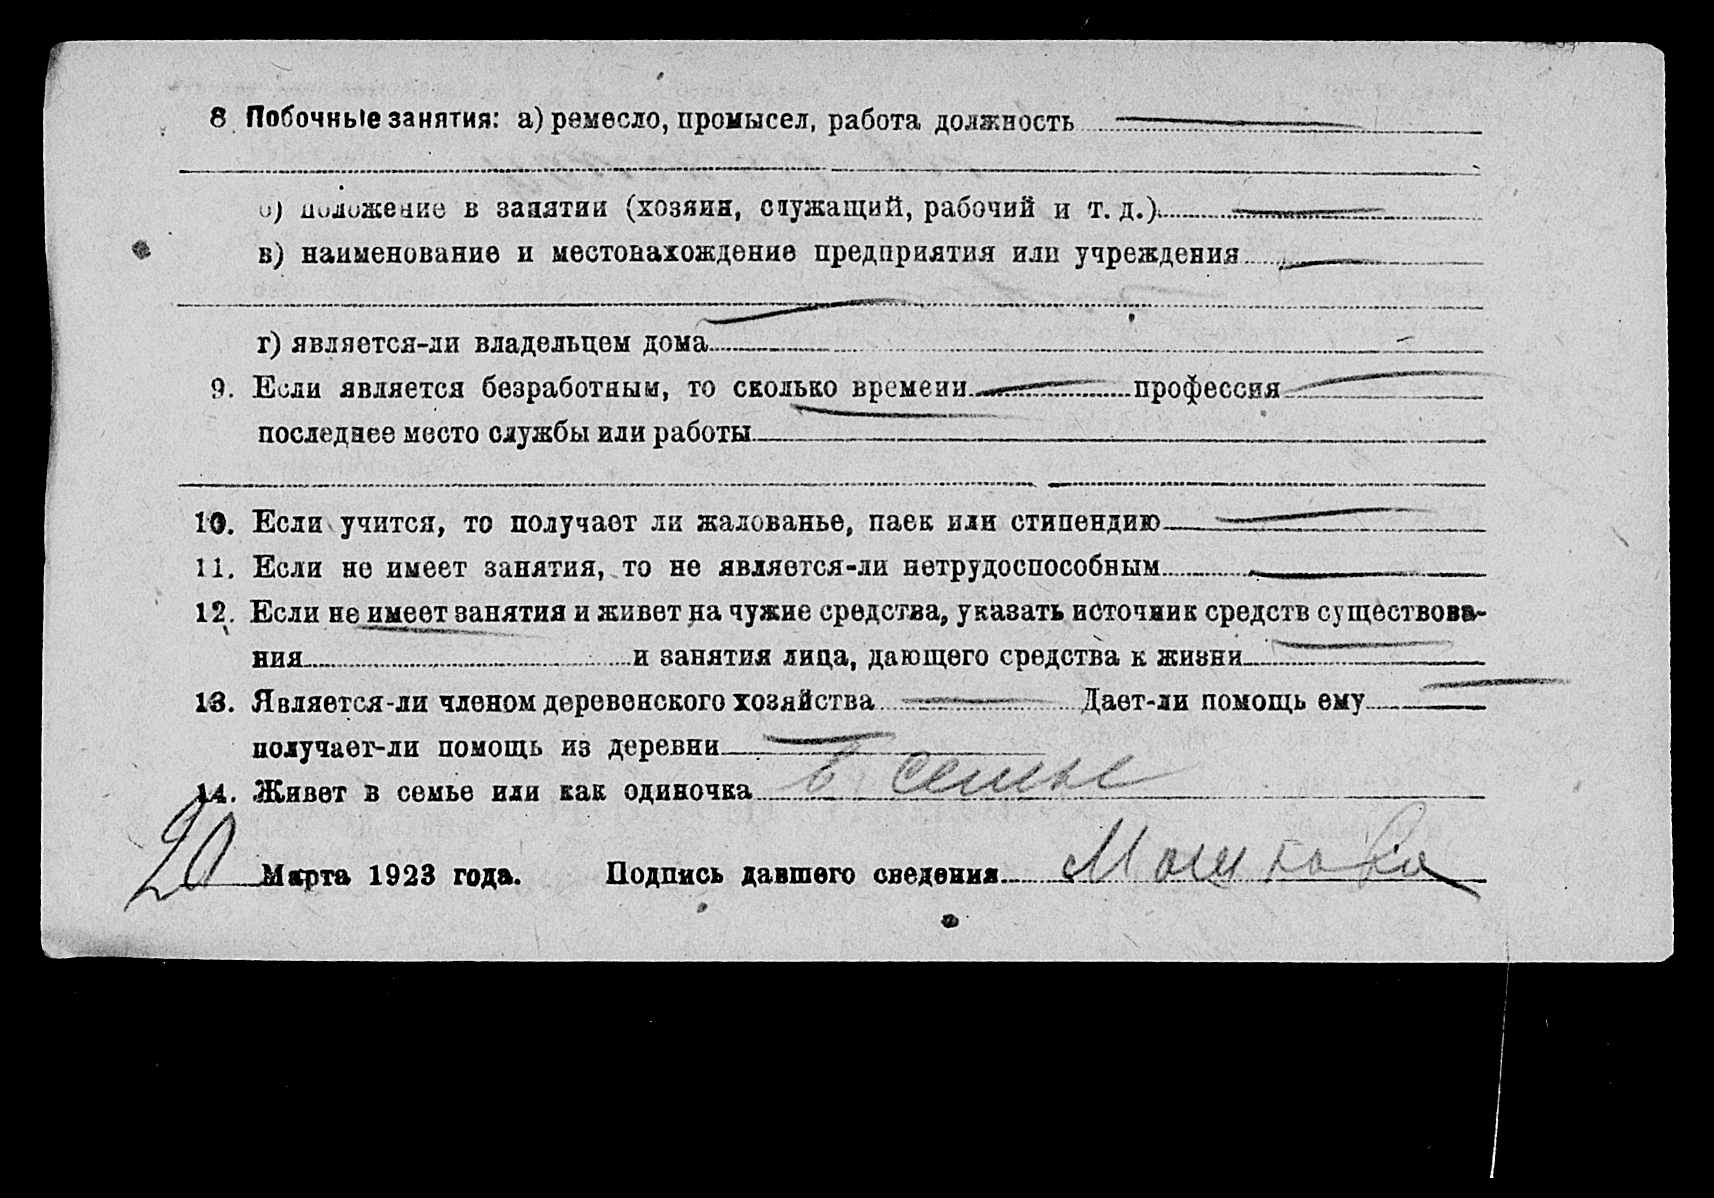 8. Побочные занятия: а) ремесло, промысел, работа должность
б) положение в занятии (хозяин, служащий, рабочий и т. д.)
в) наименование и местонахождение предприятия или учреждения
г) является-ли владельцем дома
9. Если является безработным, то сколько времени профессия
последнее место службы или работы
10. Если учится, то получает ли жалованье, паек или стипендию
11. Если не имеет занятия, то не является-ли нетрудоспособным
12. Если не имеет занятия и живет на чужие средства, указать источник средств существова-
ния и занятия лица, дающего средства к жизни
13. Является-ли членом деревенского хозяйства Дает-ли помощь ему
получает-ли помощь из деревни
14. Живет в семье или как одиночка в семье
20 Марта 1923 года. Подпись давшего сведения Мошкова